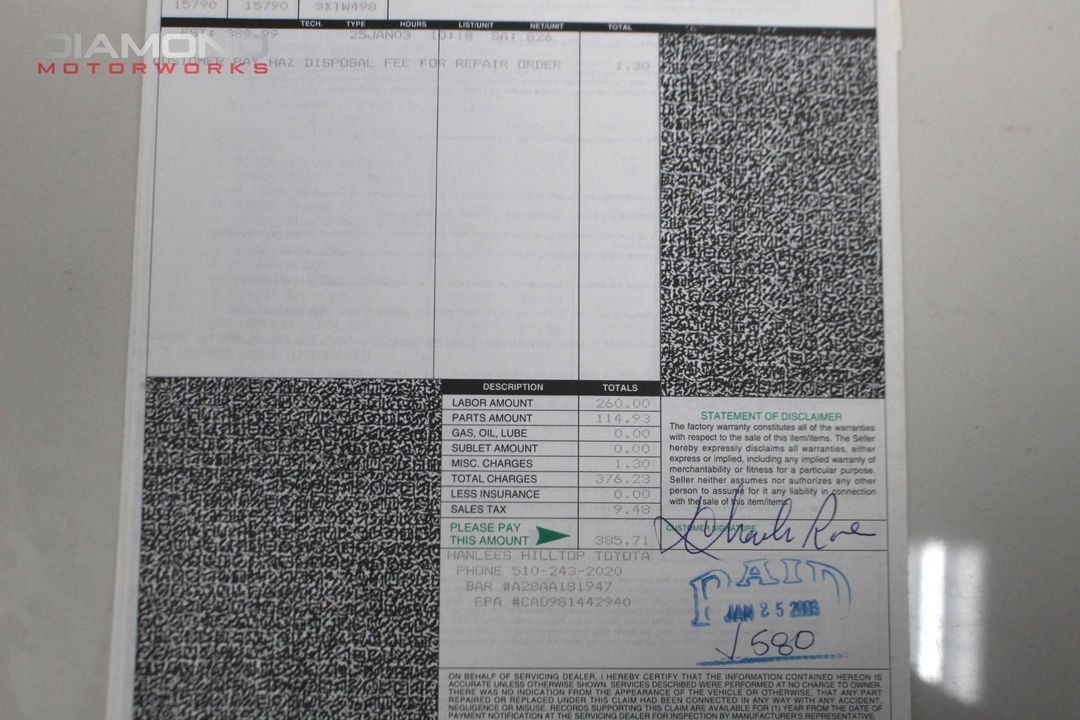 15790 15790 3XTW498
TECH. TYPE HOURS LIST/UNIT NET/UNIT TOTAL
DIAMOND
MOTORWORKS
EST: 389.99 25JAN03 10:18 SA: 826
CUSTOMER PAY HAZ DISPOSAL FEE FOR REPAIR ORDER 1.30
DESCRIPTION TOTALS
LABOR AMOUNT 260.00
PARTS AMOUNT 114.93
GAS, OIL, LUBE 0.00
SUBLET AMOUNT 0.00
MISC. CHARGES 1.30
TOTAL CHARGES 376.23
LESS INSURANCE 0.00
SALES TAX 9.48
PLEASE PAY
THIS AMOUNT 385.71
STATEMENT OF DISCLAIMER
The factory warranty constitutes all of the warranties
with respect to the sale of this item/items. The Seller
hereby expressly disclaims all warranties, either
express or implied, including any implied warranty of
merchantability or fitness for a particular purpose.
Seller neither assumes nor authorizes any other
person to assume for it any liability in connection
with the sale of this item/items.
CUSTOMER SIGNATURE
HANLEES HILLTOP TOYOTA
PHONE 510-243-2020
BAR #A28AA181947
EPA #CAD981442940
PAID
JAN 25 2003
580
ON BEHALF OF SERVICING DEALER, I HEREBY CERTIFY THAT THE INFORMATION CONTAINED HEREON IS
ACCURATE UNLESS OTHERWISE SHOWN. SERVICES DESCRIBED WERE PERFORMED AT NO CHARGE TO OWNER.
THERE WAS NO INDICATION FROM THE APPEARANCE OF THE VEHICLE OR OTHERWISE, THAT ANY PART
REPAIRED OR REPLACED UNDER THIS CLAIM HAD BEEN CONNECTED IN ANY WAY WITH ANY ACCIDENT,
NEGLIGENCE OR MISUSE. RECORDS SUPPORTING THIS CLAIM ARE AVAILABLE FOR (1) YEAR FROM THE DATE OF
PAYMENT NOTIFICATION AT THE SERVICING DEALER FOR INSPECTION BY MANUFACTURER'S REPRESENTATIVE.